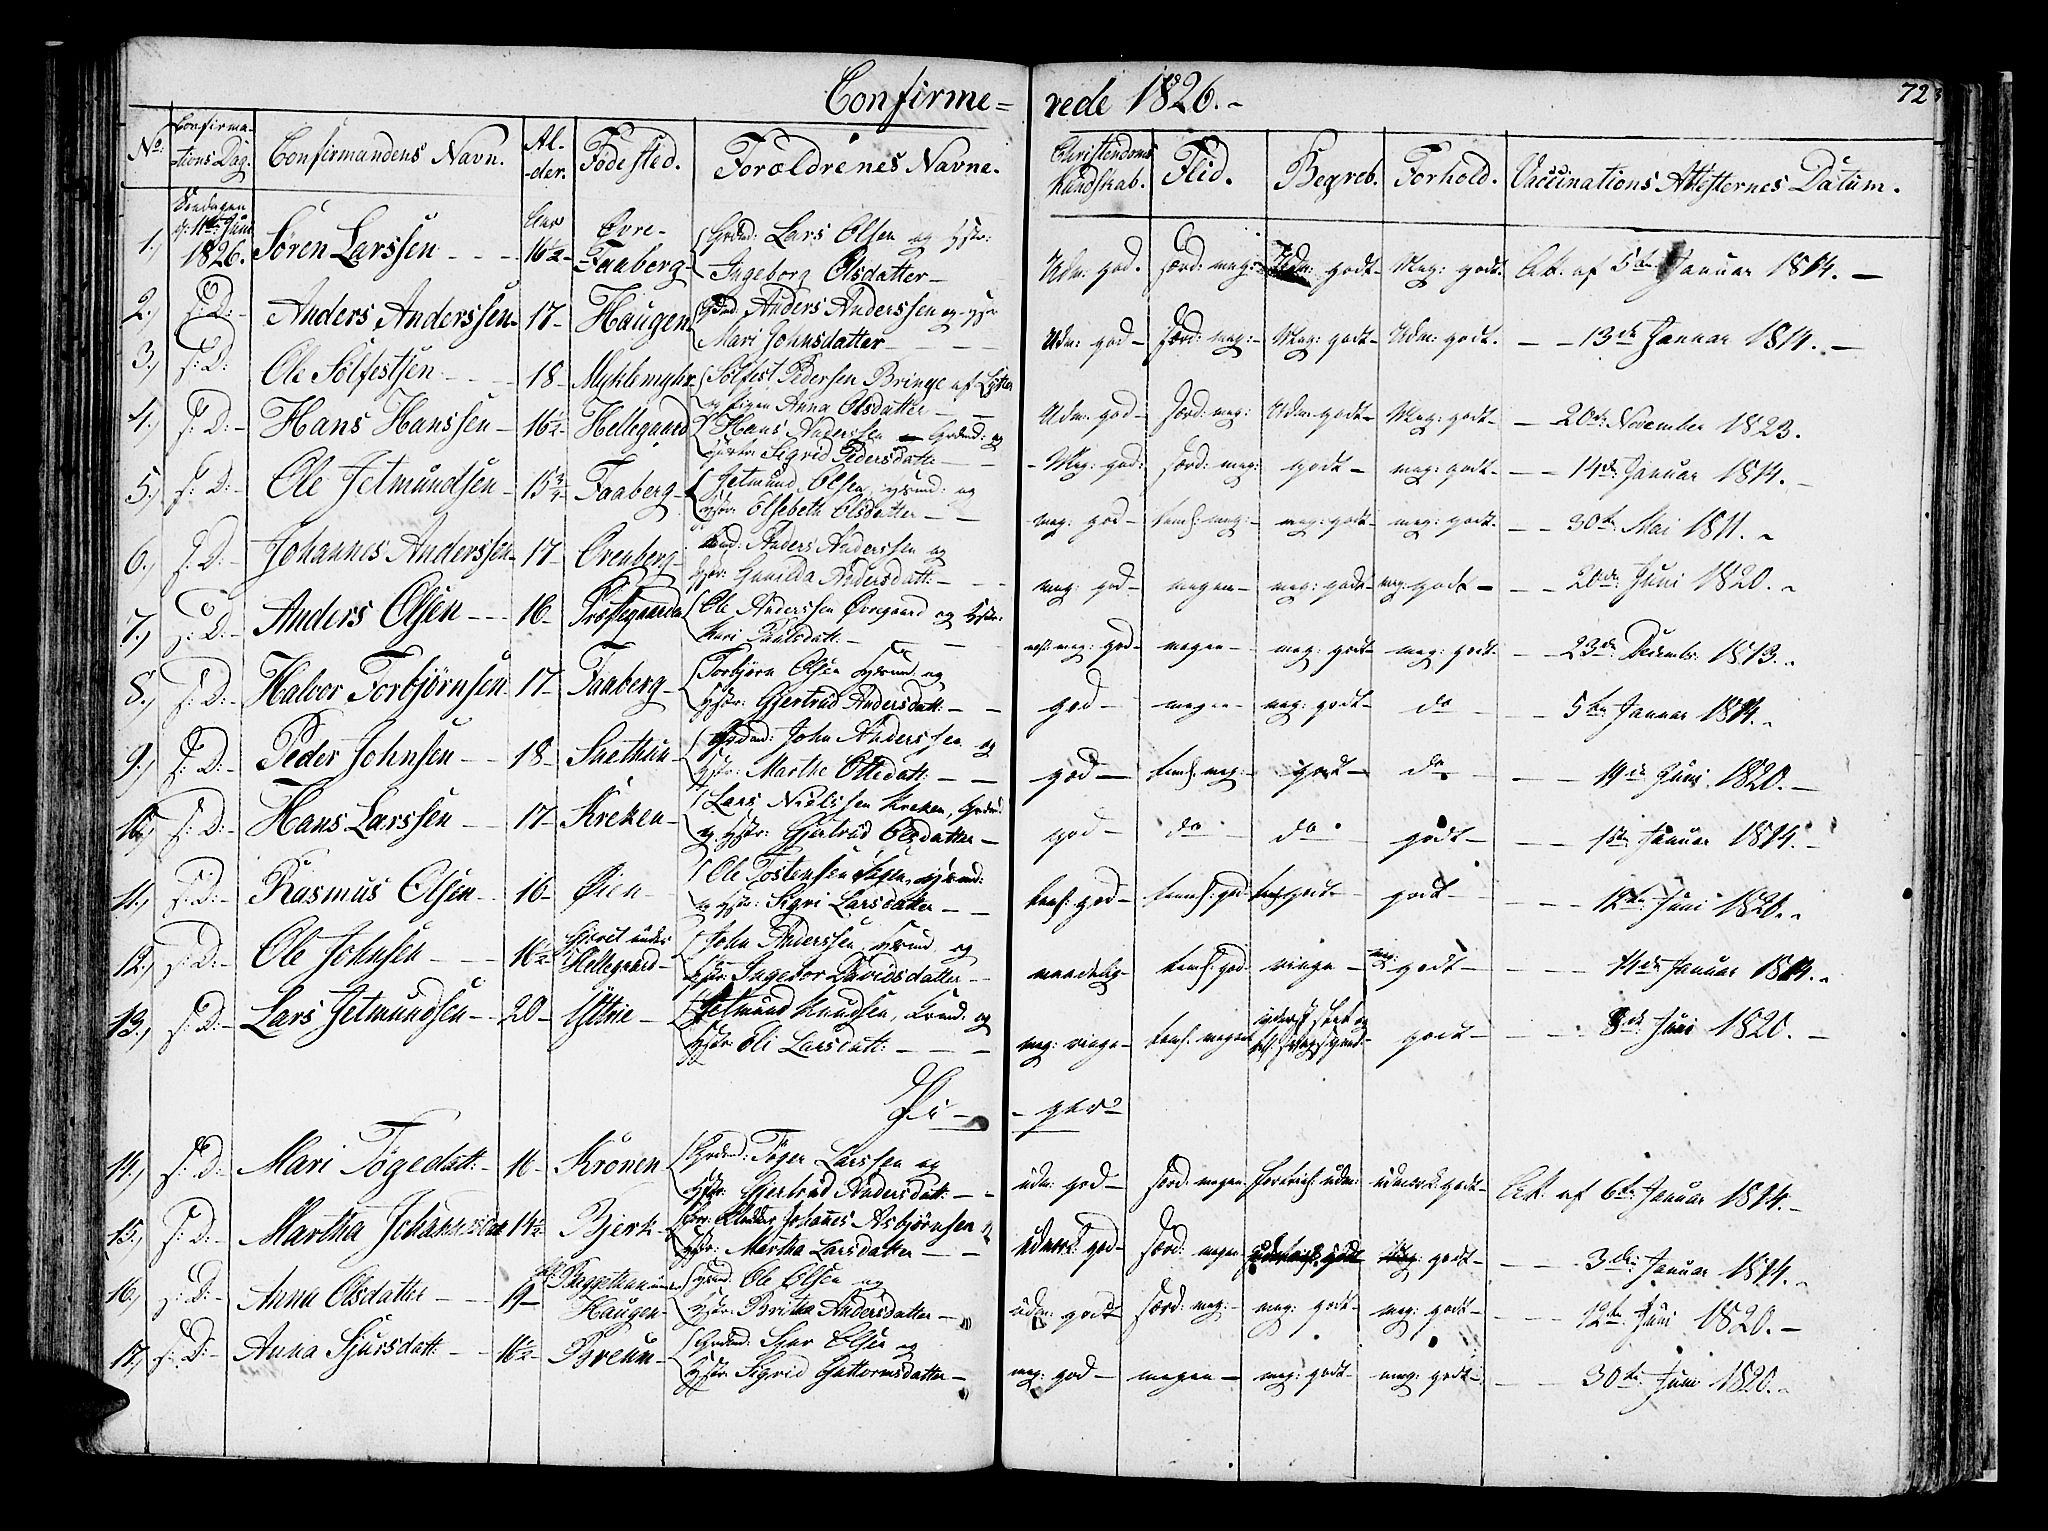 Confirme= rede 1826.-
72
No. Confirma-tions Dag. Confirmandens Navn. Al-der. Fødested. Forældrenes Navne. Christendoms Kundskab. Flid. Begreb. Forhold. Vaccinations Attesternes Datum.
1.) Søndagen d: 11te Juni 1826. Søren Larssen - - - Aar 16½ Øvre-Faaberg- Grdmd: Lars Olsen og Hstr: Ingeborg Olsdatter- Udm: god. særd: meg:- Udm: godt- Meg: godt. Att. af 5te Januar 1814. -
2.) s: D:- Anders Anderssen- 17- Haugen Grdmd: Anders Anderssen og Hstr Mari Johnsdatter - - - Udm: god- særd: meg:- Meg: godt- Udm: godt. - - 13de Januar 1814. -
3.) s: D: Ole Sølfestsen - - - 18- Myklemyhr Sølfest Pedersen Bringe af Lyster og Pigen Anna Olsdatter - - Udm: god- særd: meg: Udm: godt- Meg: godt- - 20de November 1823.
4.) s: D:- Hans Hanssen - 16½ Hellegaard Hans Anderssen Grdmd: og Hstr: Sigrid Pedersdatter - - - Meg: god: særd: meg: godt- meg: godt- - - 14de Januar 1814. -
5.) s: D:- Ole Jetmundsen - 15¾ Faaberg- Jetmund Olsen, Hsmd: og Hstr: Elsebeth Olsdatter - - meg: god- temf: meg:- meg: godt- meg: godt- - - 30te Mai 1811. -
6.) s: D:- Johannes Anderssen- 17- Orenberg- Anders Anderssen og Hstr: Gunilda Andersdatt: - - - meg: god- megen- meg: godt- meg: godt- - - 20de Juni 1820. -
7.) s: D:- Anders Olsen - - 16- Ole Anderssen Øvregaard og Hstr: Kari Paulsdatt: - - meg: god- megen- meg: godt- meg: godt- - - 23de Decembr: 1813. -
8.) s: D:- Halvor Torbjørnsen- 17- Faaberg- Torbjørn Olsen Hsmd: og Hstr: Gjertrud Andersdatt: - - god- megen- meg: godt- do - - 5te Januar 1814. -
9.) s: D:- Peder Johnsen - - 18- Snethun- Grdmd: John Anderssen og Hstr: Marthe Ottedatt: - - god- temf: meg:- godt- do - - 19de Juni 1820. -
10.) s: D:- Hans Larssen - - 17- Kreken- Lars Nielssen Kreken, Grdmd: og Hstr: Gjertrud Olsdatter - god- do do godt- - - Januar 1814. -
11.) s: D:- Rasmus Olsen - - 16- Øien- Ole Tostensen Øien, Hsmd: og Hstr: Sigri Larsdatter - - temf: god- temf: god- godt- godt- - - 12te Juni 1820. -
12.) s: D:- Ole Johnsen - - - 16½ under Hellegaard- John Anderssen Hsmd: og Hstr: Ingebor Davidsdatter - maadelig- temf: god- ringe- meg: godt- - - 14de Januar 1814. -
13.) s: D:- Lars Jetmundsen - - 20- Yttrie- Jetmund Knudsen, Grmd: og Hstr: Eli Larsdatt: - - - meg: ringe- temf: megen godt- - - 8de Juni 1820. -
Pi- -ger-
14.) s: D:- Mari Tøgedatt:- 16- Kronen Grdmd: Tøger Larssen og Hstr: Gjertrud Andersdatt: - - udm: god- særd: megen udm: udmærk: godt- Att. af 6te Januar 1814. -
15.) s: D:- Martha Johannisdatt 14½ Bjerk- Johanes Asbjørnsen Hstr: Martha Larsdatter - - udmærk: god- særd: megen Meg: godt- - - 3de Januar 1814. -
16.) s: D:- Anna Olsdatter - - 19- under Haugen- Hsmd: Ole Olsen og Hstr: Britha Andersdatter - udm: godt særd: meg:- meg: godt- meg: godt- - - 12te Juni 1820. -
17.) s: D:- Anna Sjursdatt: - - 16½ Breun- Grdmd: Siur Olsen og Hstr: Sigrid Guttormsdatter - meg: god- megen- meg: godt- meg: godt- - - 30te Juni 1820. -